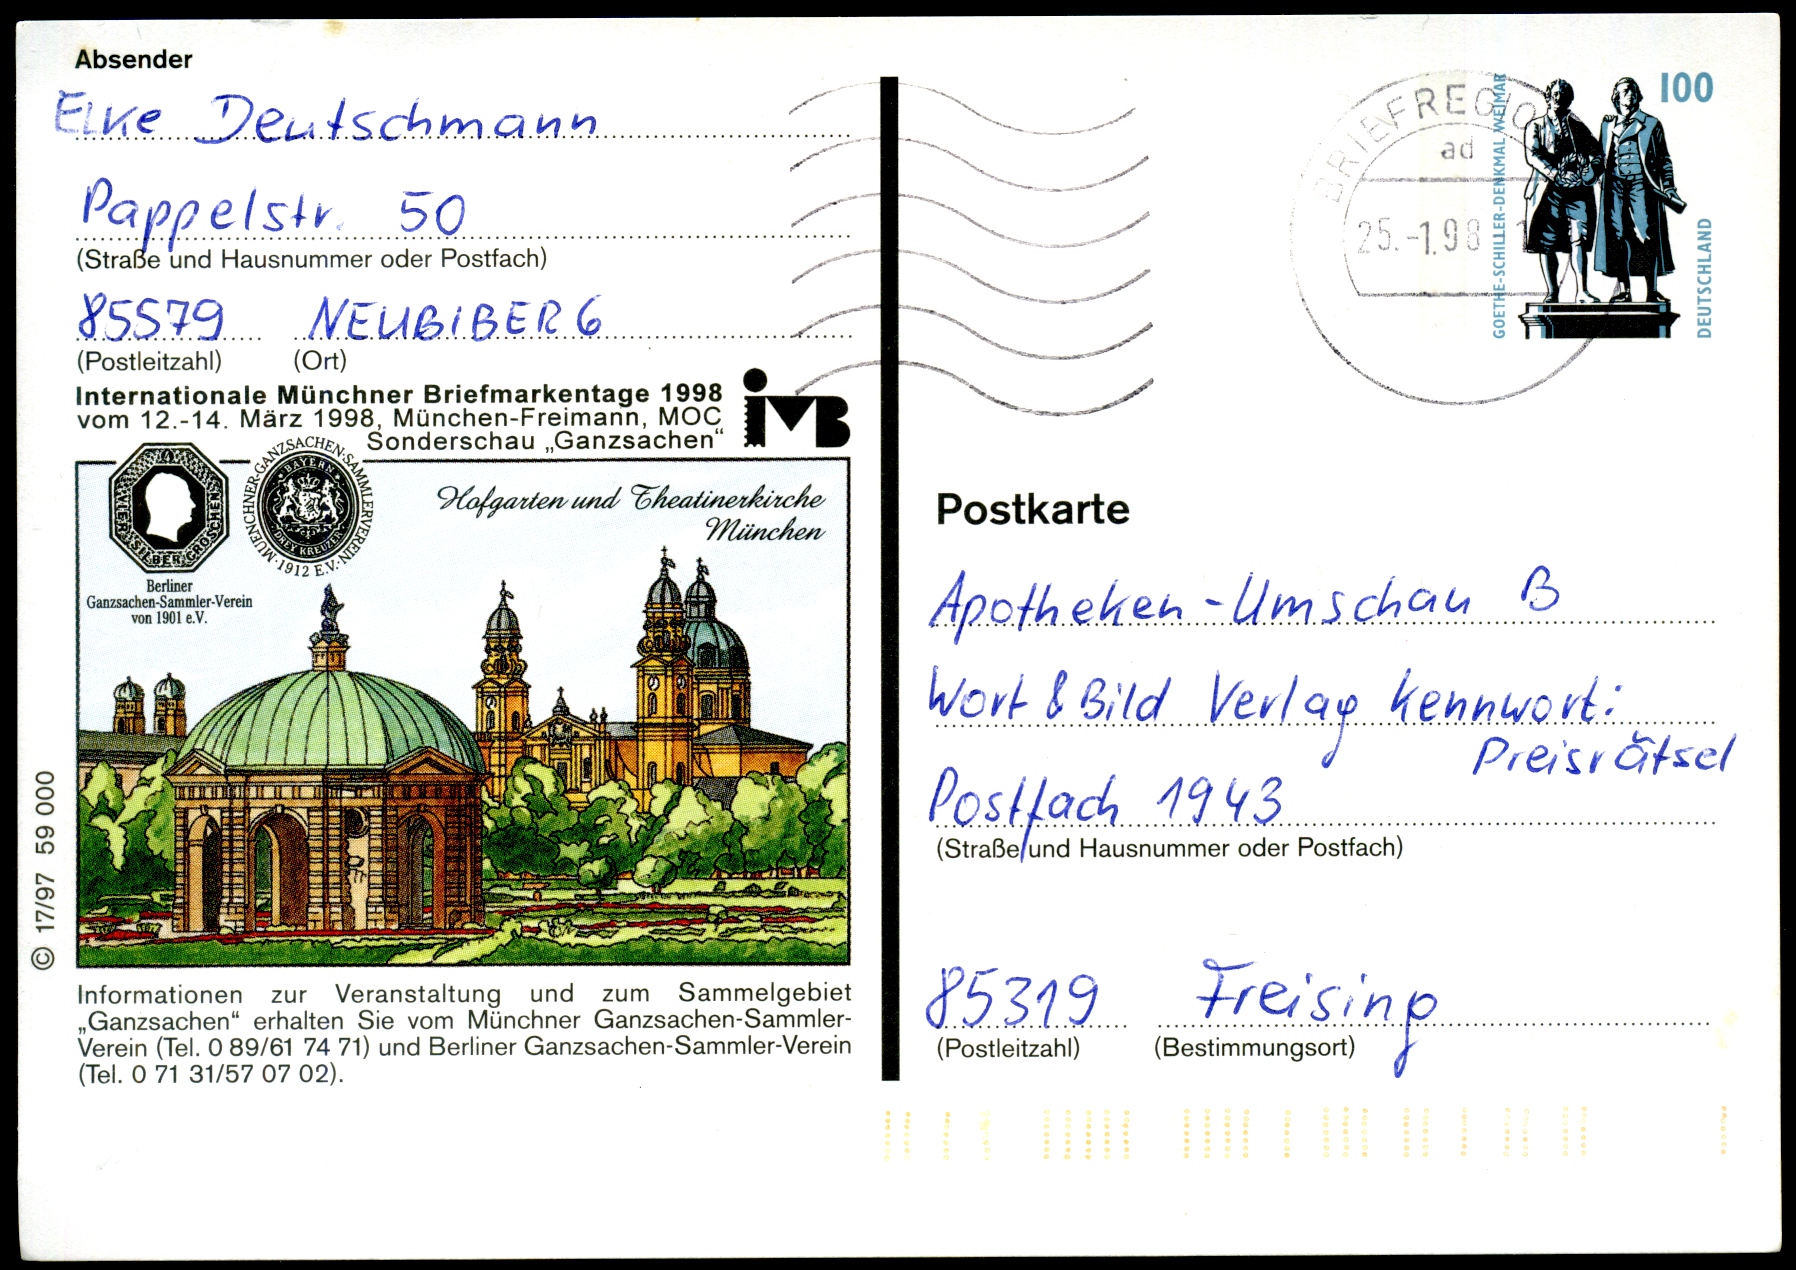 Absender
Elke Deutschmann
Pappelstr. 50
(Straße und Hausnummer oder Postfach)
85579 NEUBIBERG
(Postleitzahl) (Ort)
Internationale Münchner Briefmarkentage 1998
vom 12.-14. März 1998, München-Freimann, MOC
Sonderschau „Ganzsachen“
iMB
VIER SILBER GROSCHEN
MUENCHNER-GANZSACHEN-SAMMLERVEREIN · 1912 E.V. ·
BAYERN
DREY KREUZER
Berliner
Ganzsachen-Sammler-Verein
von 1901 e.V.
Hofgarten und Theatinerkirche
München
© 17/97 59 000
Informationen zur Veranstaltung und zum Sammelgebiet
„Ganzsachen“ erhalten Sie vom Münchner Ganzsachen-Sammler-
Verein (Tel. 0 89/61 74 71) und Berliner Ganzsachen-Sammler-Verein
(Tel. 0 71 31/57 07 02).
BRIEFREGIO
ad
25.-1.98
100
GOETHE-SCHILLER-DENKMAL WEIMAR
DEUTSCHLAND
Postkarte
Apotheken-Umschau B
Wort & Bild Verlag Kennwort:
Preisrätsel
Postfach 1943
(Straße und Hausnummer oder Postfach)
85319 Freising
(Postleitzahl) (Bestimmungsort)